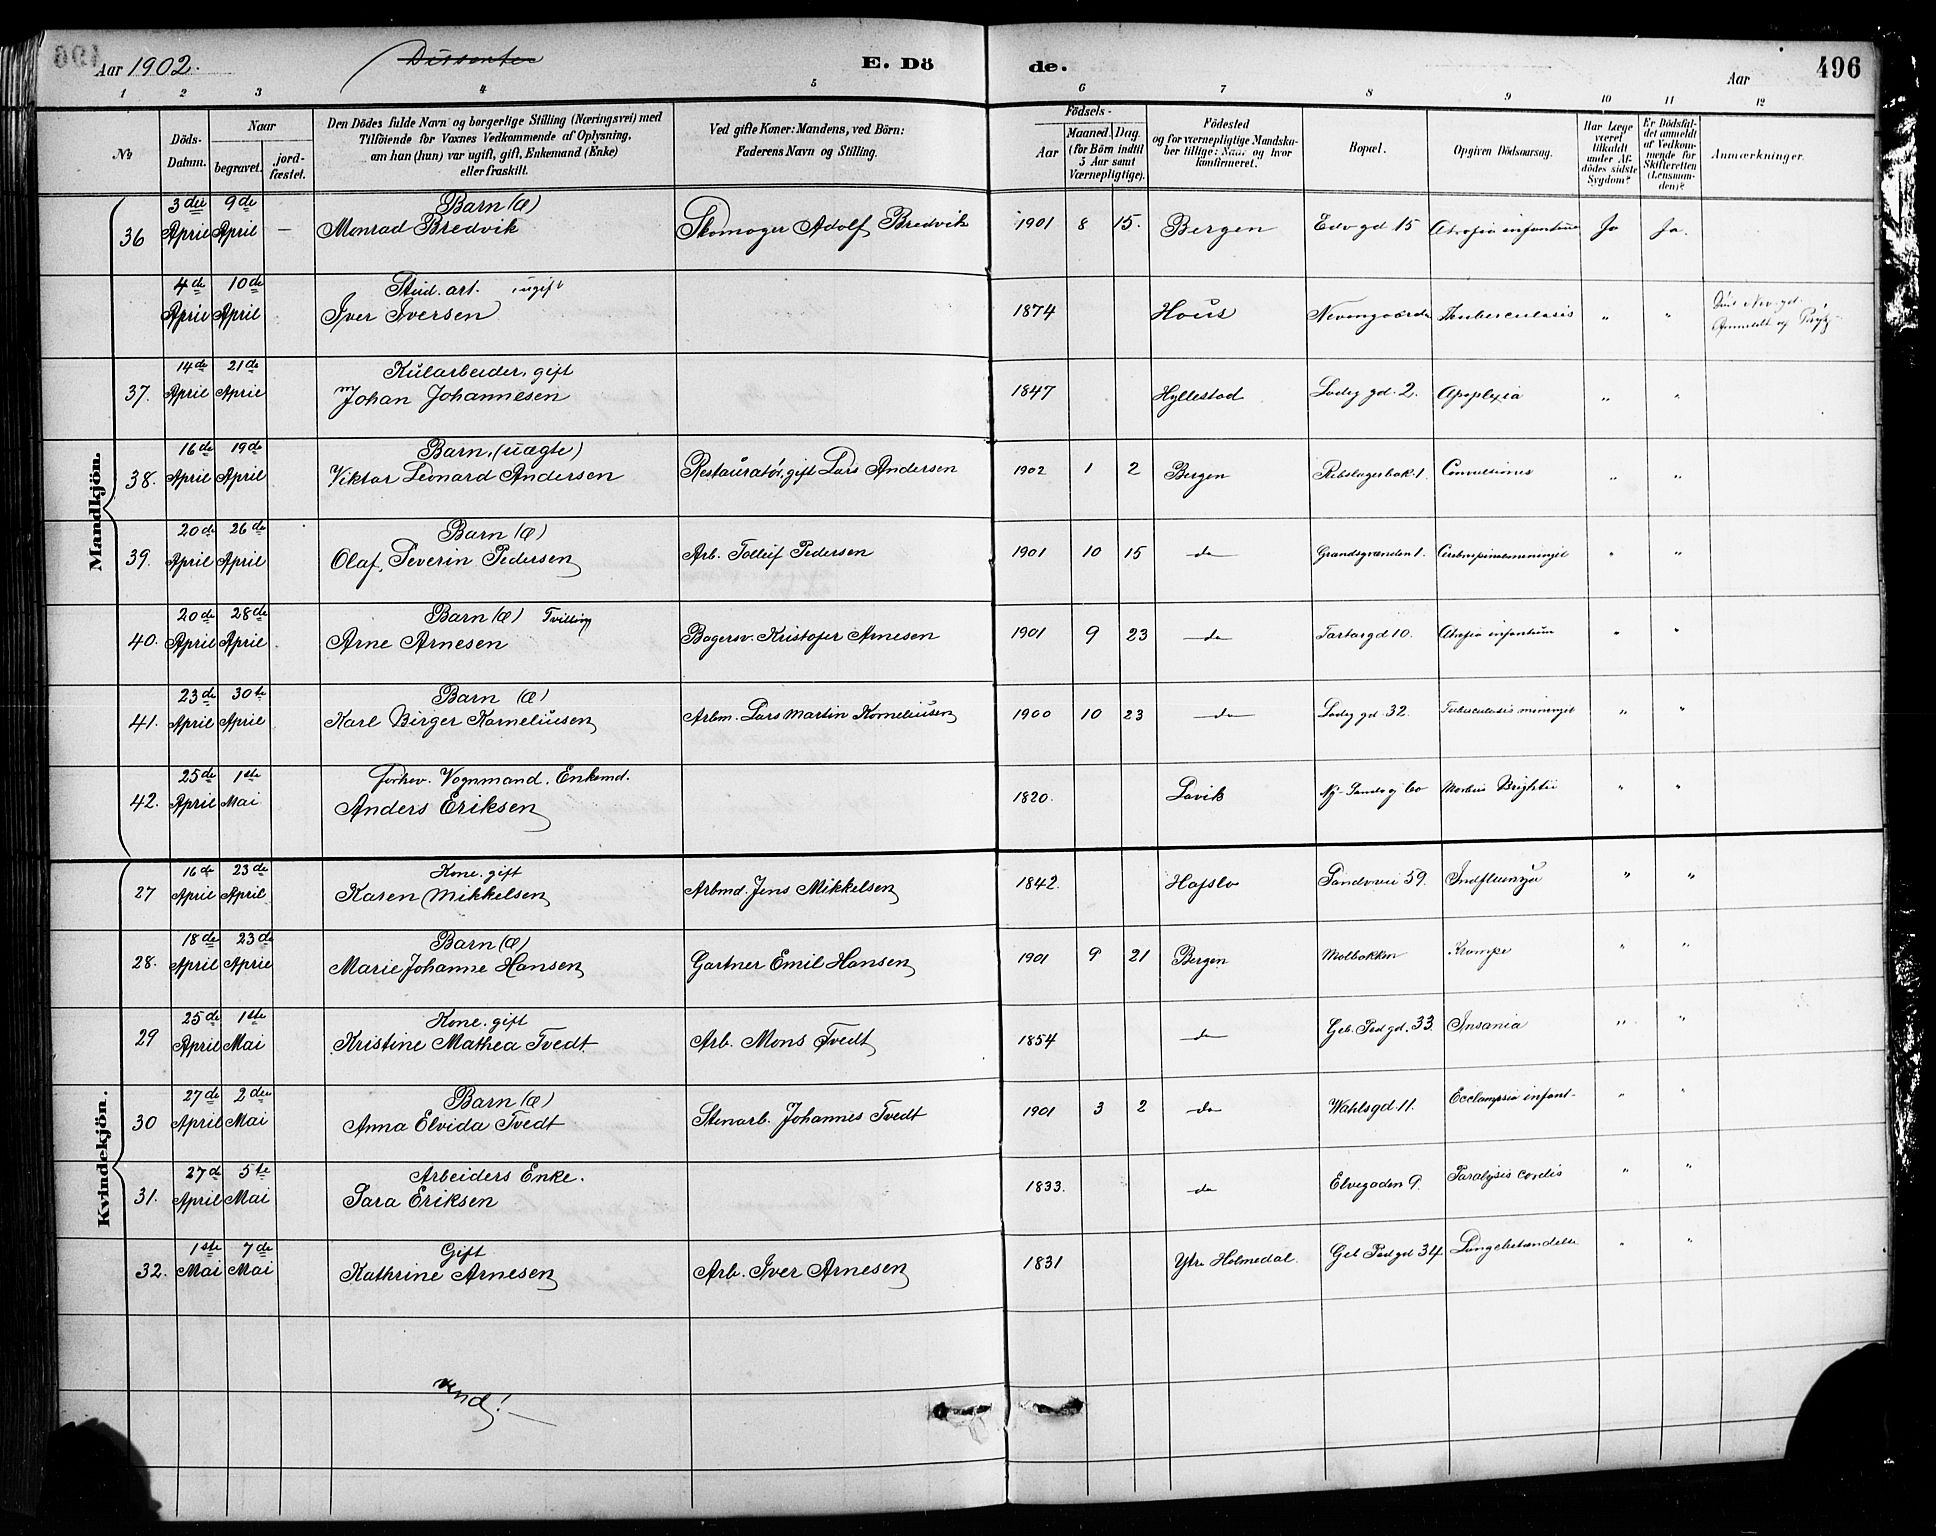 Aar 1902.
Dissenter
E. Dö
de.
Aar
496
1 2 3 4 5 6 7 8 9 10 11 12
No
Döds-Datum.
Naar
begravet.
jord-fæstet.
Den Dödes fulde Navn og borgerlige Stilling (Næringsvei) med
Tilföiende for Voxnes Vedkommende af Oplysning,
om han (hun) var ugift, gift, Enkemand (Enke)
eller fraskilt.
Ved gifte Koner: Mandens, ved Börn:
Faderens Navn og Stilling.
Födsels-
Aar
Maaned. Dag.
(for Börn indtil
5 Aar samt
Værnepligtige).
Födested
og for værnepligtige Mandska-
ber tillige: Naar og hvor
konfirmeret.
Bopæl.
Opgiven Dödsaarsag.
Har Læge
været
tilkaldt
under Af-
dödes sidste
Sygdom?
Er Dödsfal-
det anmeldt
af Vedkom-
mende for
Skifteretten
(Lensman-
den)?
Anmærkninger.
Mandkjön.
36 3die April 9de April — Barn (Æ)
Monrad Bredvik Skomager Adolf Bredvik 1901 8 15. Bergen Edv gd 15 Atrofia infantum Ja Ja.
4de April 10de April Stud. art. ugift
Iver Iversen 1874 Hous Nevengaarden Tuberculosis " "
Anmeldt af
37. 14de April 21de April Kularbeider, gift
Johan Johannesen 1847 Hyllestad Ladeg gd. 2. Apoplexia " "
38. 16de April 19de April Barn, (uægte)
Viktor Leonard Andersen Restauratør, gift Lars Andersen 1902 1 2 Bergen Rebslagerbak. 1. Convulsiones " "
39. 20de April 26de April Barn (Æ)
Olaf Severin Pedersen Arb. Tollef Pedersen 1901 10 15 do Grandsgrænden 1. Cerebrospinalmeningit " "
40. 20de April 28de April Barn (Æ) Tvilling
Arne Arnesen Bagersv. Kristofer Arnesen 1901 9 23 do Tartargd 10. Atrofia infantum " "
41. 23de April 30te April Barn (Æ)
Karl Birger Korneliusen Arbm. Lars Martin Korneliusen 1900 10 23 do Ladeg gd. 32. Tuberculosis meningit " "
42. 25de April 1ste Mai Forhev. Vognmand. Enkemd.
Anders Eriksen 1820. Lavik Ny-Sandvg 60 Morbus Brightii " "
Kvindekjön.
27 16de April 23de April Kone. gift
Karen Mikkelsen Arbmd. Jens Mikkelsen 1842. Hafslo Sandvvei 59. Indfluensja " "
28. 18de April 23de April Barn (Æ)
Marie Johanne Hansen Gartner Emil Hansen 1901 9 21 Bergen Molbakken Krampe " "
29 25de April 1ste Mai Kone. gift
Kristine Mathea Tvedt Arb. Mons Tvedt 1854 do Geb. Pedgd. 33. Insania " "
30 27de April 2den Mai Barn (Æ)
Anna Elvida Tvedt Stenarb. Johannes Tvedt 1901 3 2 do Wahlsgd 11. Ecclampsia infant. " "
31. 27d April 5te Mai Arbeiders Enke.
Sara Eriksen 1833. do Elvegaden 9. Paralysis cordis " "
32. 1ste Mai 7de Mai Gift
Kathrine Arnesen Arb. Iver Arnesen 1831 Ytre Holmedal. Geb Pedgd 34 Lungebetændelse " "
Vend!